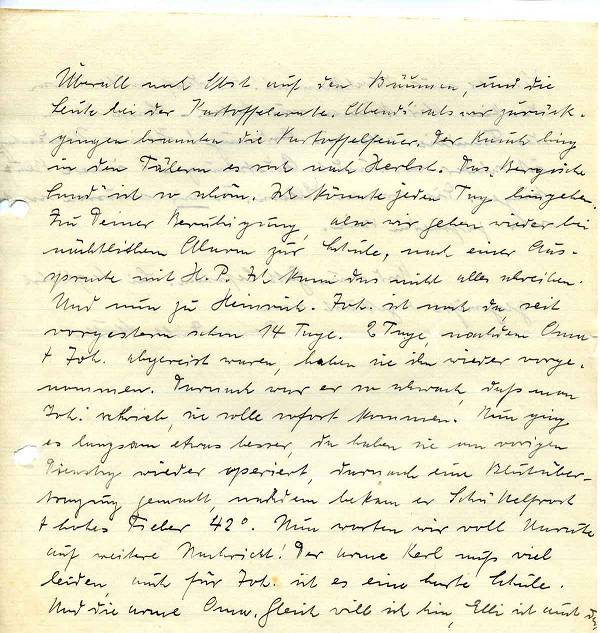 Überall noch Obst auf den Bäumen, und die
Leute bei der Kartoffelernte. Abends als wir zurück-
gingen brannten die Kartoffelfeuer. Der Rauch hing
in den Tälern es roch nach Herbst. Das Bergische
Land ist so schön. Ich könnte jeden Tag hingehen.
Zu Deiner Beruhigung, also wir gehen wieder bei
nächtlichem Alarm zur Schule, nach einer Aus-
sprache mit H. P. Ich kann das nicht alles schreiben.
Und nun zu Heinrich. Joh. ist noch da seit
vorgestern schon 14 Tage. 2 Tage, nachdem Oma
+ Joh. abgereist waren, haben sie ihn wieder vorge-
nommen. Darnach war er so schwach, daß man
Joh. schrieb, sie solle sofort kommen. Nun ging
es langsam etwas besser, da haben sie am vorigen
Dienstag wieder operiert, darnach eine Blutüber-
tragung gemacht, nachdem bekam er Schüttelfrost
+ hohes Fieber 42°. Nun warten wir voll Unruhe
auf weitere Nachricht! Der arme Kerl muß viel
leiden, auch für Joh. ist es eine harte Schule.
Und die arme Oma. Gleich will ich hin, Elli ist auch da,